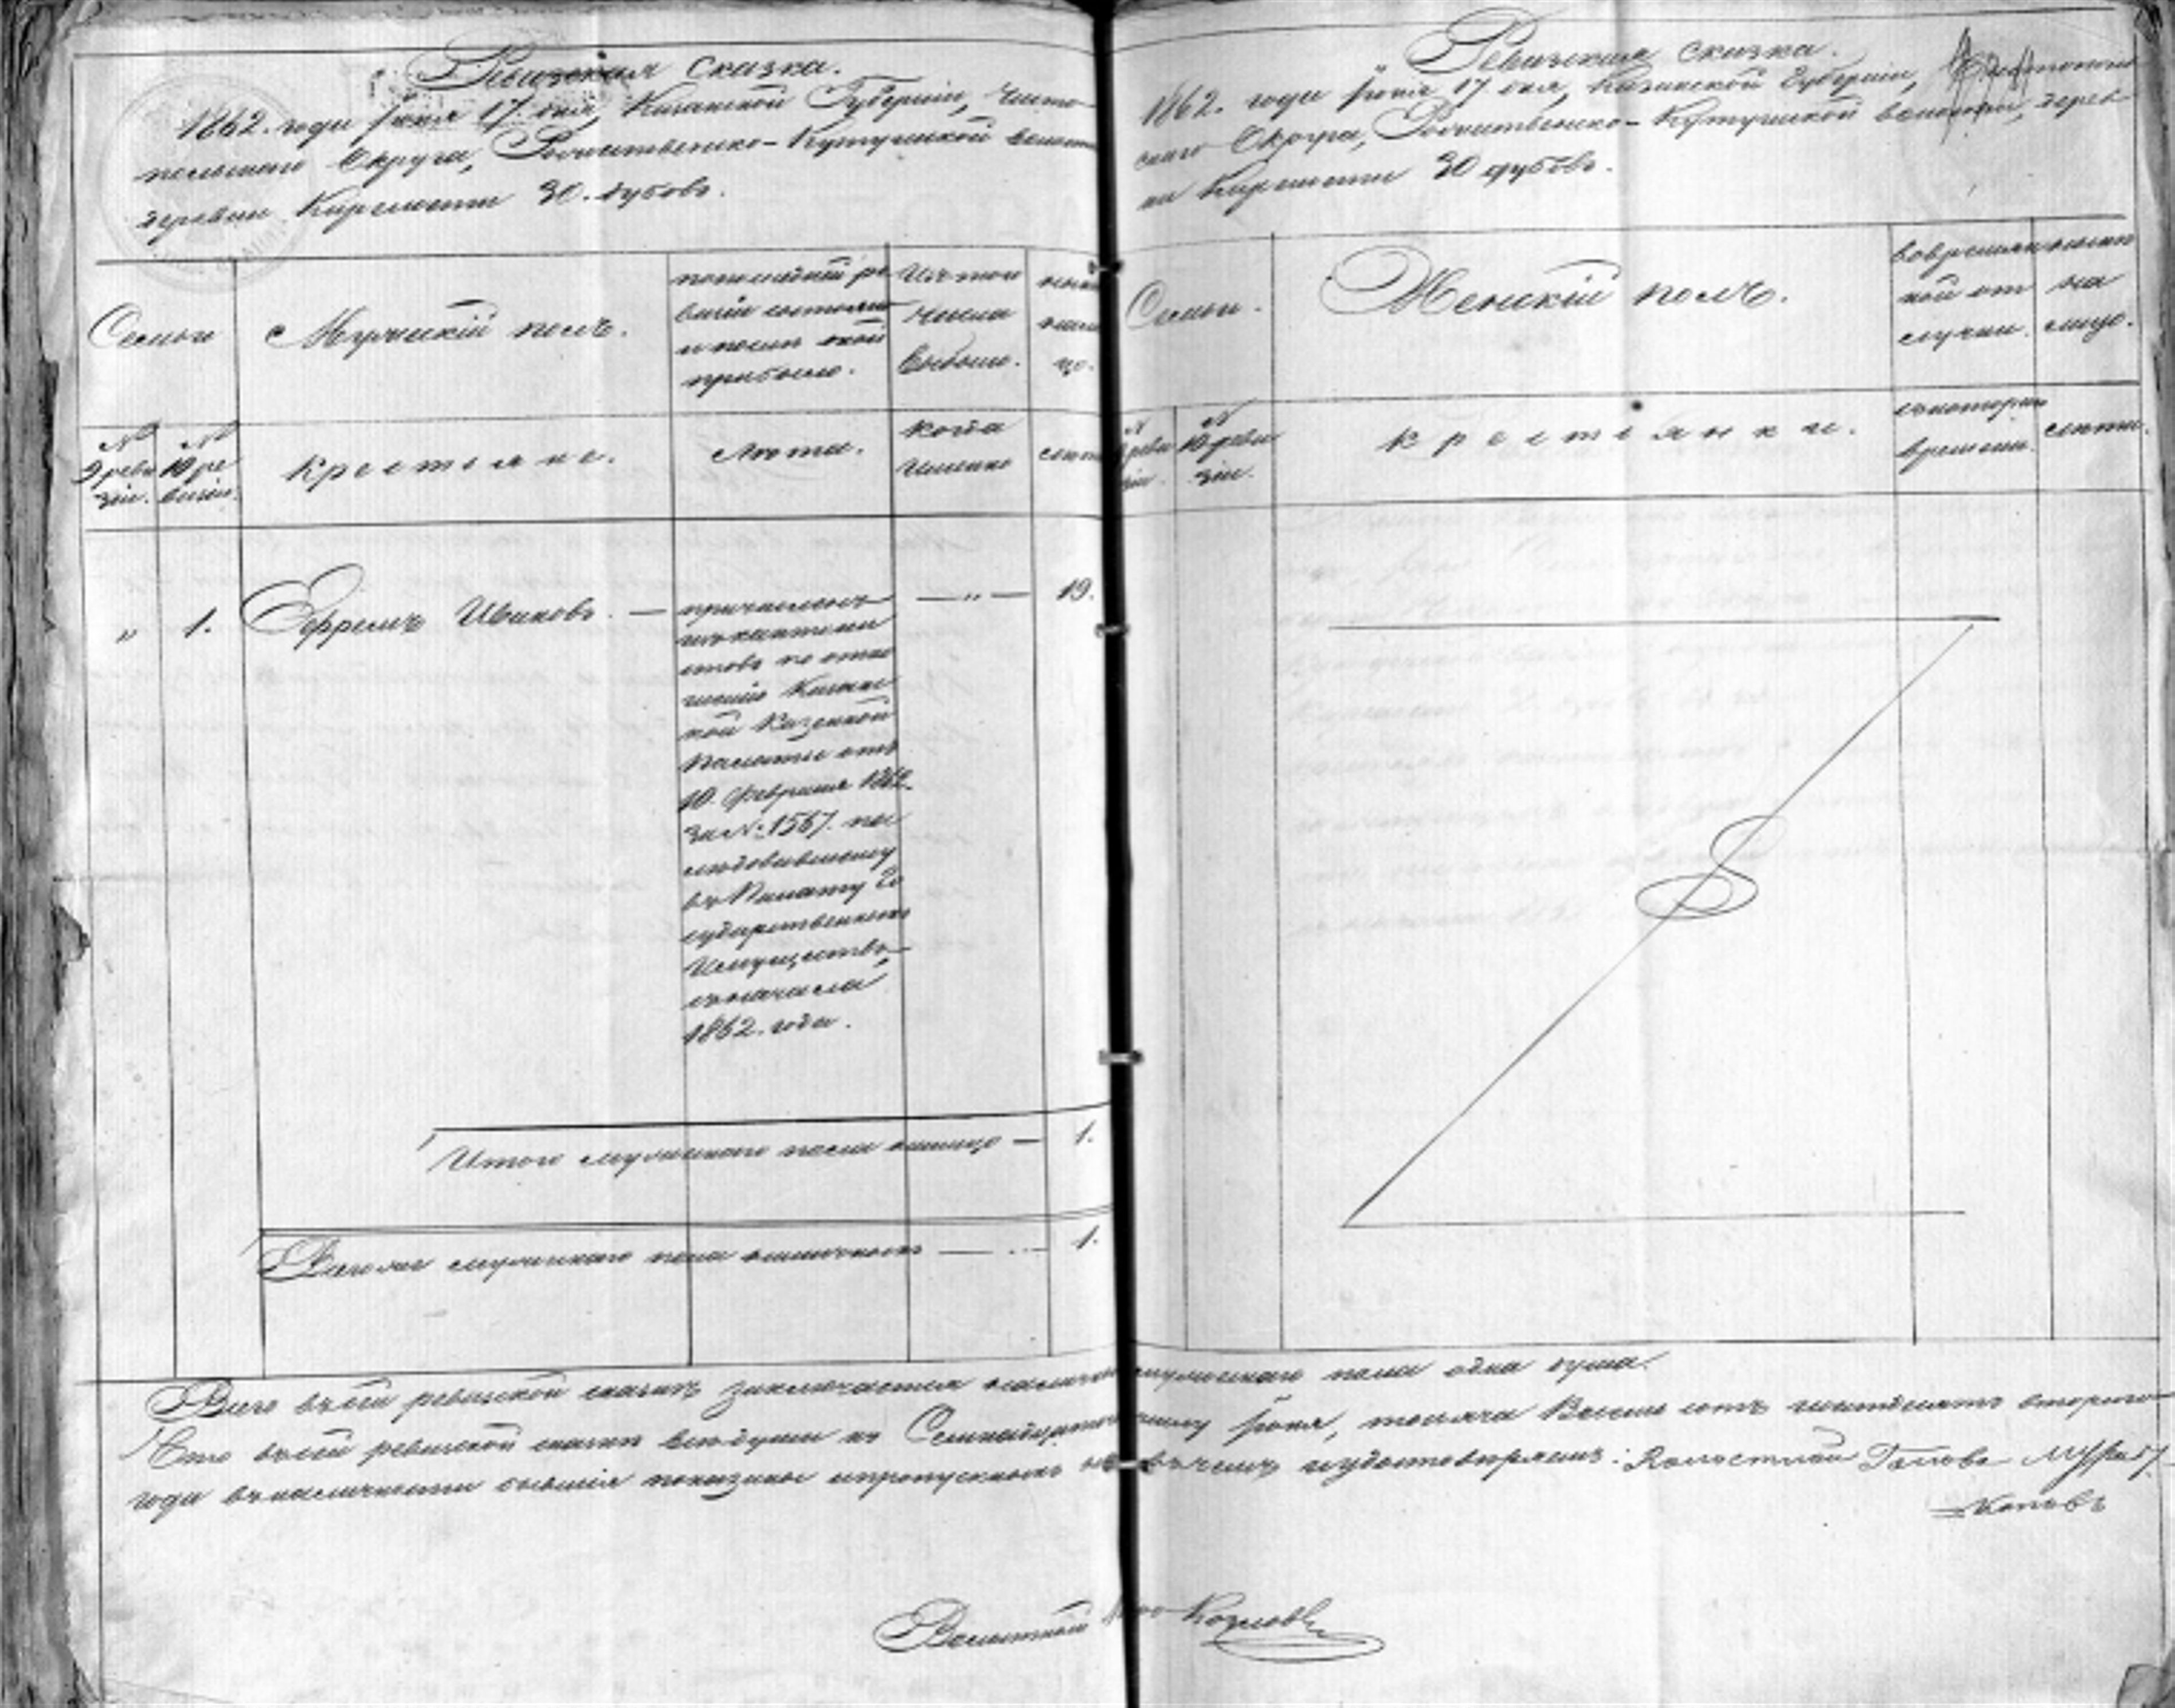 Ревизская сказка.
1862. года Іюня 17. дня, Казанской Губерніи, Чисто
польскаго Округа, Рождественско-Кутушской волости
деревни Киремети 30. дубовъ.
Семьи
Мужескій полъ.
по последней ре
визіи состояло
и после оной
прибыло.
Изъ того
числа
выбыло.
ныне
на ли
цо.
№
9 реви
зіи.
№
10 ре
визіи.
Крестьяне.
Лета.
Когда
именно
лета
„ 1. Ефремъ Ивановъ. — причисленъ — „ — 19.
изъ кантони
стовъ по отно
шенію Казанс
кой Казенной
Палаты отъ
10. Февраля 1862.
за № 1567. по
следовавшему
въ Палату Го
сударственныхъ
Имуществъ,
съ начала
1862. года.
Итого мужескаго пола налицо — 1.
Всего же мужескаго пола наличныхъ — 1.
Ревизская сказка.
1862. года Іюня 17 дня, Казанской Губерніи,
скаго Округа, Рождественско-Кутушской волости, дерев
ни Киремети 30 дубовъ.
Семьи.
Женскій полъ.
во времен
ной от
лучки.
ныне
на
лицо.
№
9 реви
зіи.
№
10 реви
зіи.
Крестьянки.
съ котораго
времени.
лета.
Всего въ сей ревизской сказке заключается наличныхъ мужескаго пола одна душа.
Что въ сей ревизской сказке все души къ Семнадцатому числу Іюня, тысяча Восемь сотъ шестьдесятъ втораго
года въ наличности бывшія показаны и пропущенныхъ нетъ въ чемъ и удостоверяемъ: Волостной Голова
Волостной Козловъ